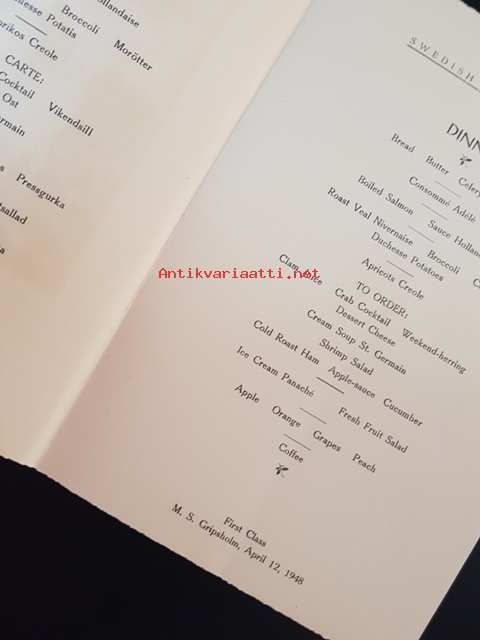 Hollandaise
Broccoli Morötter
Duchesse Potatis
Aprikos Creole
CARTE:
Cocktail Vikendsill
Ost
Germain
Pressgurka
SWEDISH
DINN
Bread Butter Celery
Consommé Adèle
Boiled Salmon Sauce Holland
Roast Veal Nivernaise Broccoli C
Duchesse Potatoes
Apricots Creole
TO ORDER:
Clam Juice Crab Cocktail Weekend-herring
Dessert Cheese
Cream Soup St. Germain
Shrimp Salad
Cold Roast Ham Apple-sauce Cucumber
Ice Cream Panaché Fresh Fruit Salad
Apple Orange Grapes Peach
Coffee
First Class
M. S. Gripsholm, April 12, 1948
Antikvariaatti.net